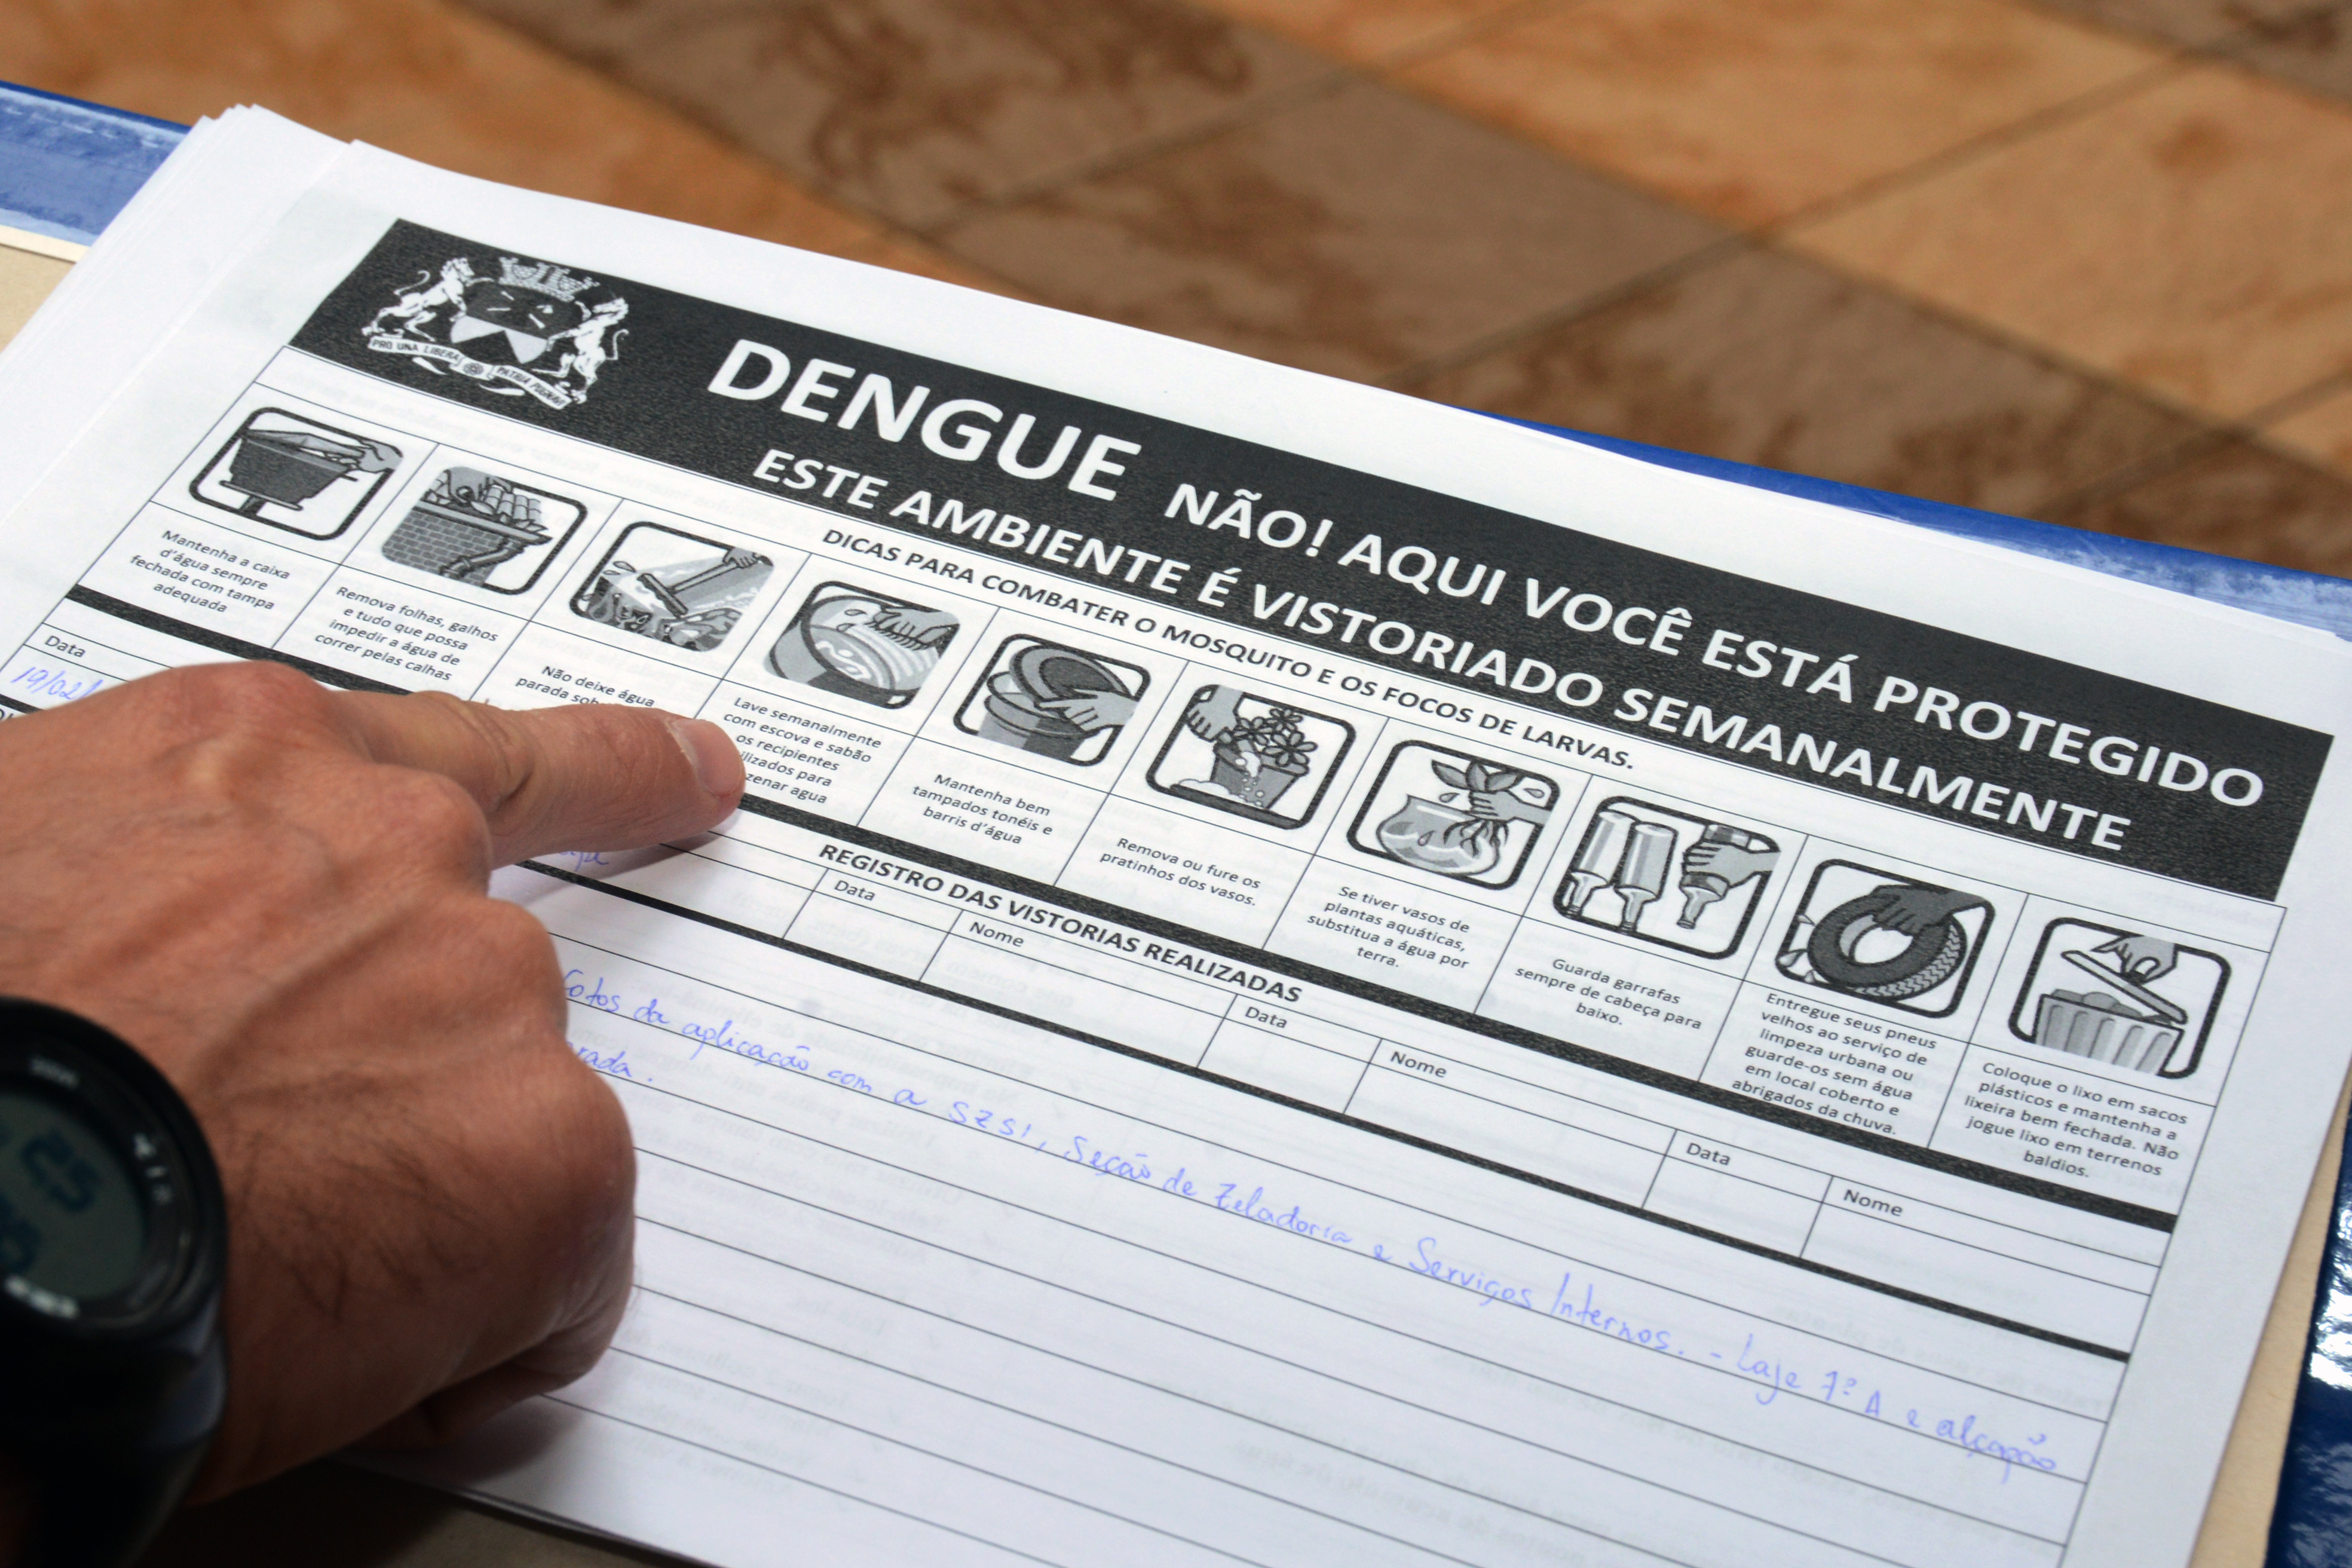 PRO UNA LIBERA PATRIA PUGNAVI
DENGUE NÃO! AQUI VOCÊ ESTÁ PROTEGIDO
ESTE AMBIENTE É VISTORIADO SEMANALMENTE
DICAS PARA COMBATER O MOSQUITO E OS FOCOS DE LARVAS.
Mantenha a caixa
d'água sempre
fechada com tampa
adequada
Remova folhas, galhos
e tudo que possa
impedir a água de
correr pelas calhas
Não deixe água
parada
Lave semanalmente
com escova e sabão
os recipientes
para
agua
Mantenha bem
tampados tonéis e
barris d'água
Remova ou fure os
pratinhos dos vasos.
Se tiver vasos de
plantas aquáticas,
substitua a água por
terra.
Guarda garrafas
sempre de cabeça para
baixo.
Entregue seus pneus
velhos ao serviço de
limpeza urbana ou
guarde-os sem água
em local coberto e
abrigados da chuva.
Coloque o lixo em sacos
plásticos e mantenha a
lixeira bem fechada. Não
jogue lixo em terrenos
baldios.
REGISTRO DAS VISTORIAS REALIZADAS
Data
Data Nome Data Nome Data Nome
19/02/
Fotos da aplicação com a SZSI, Seção de Zeladoria e Serviços Internos. - Laje 7º A e alçapão